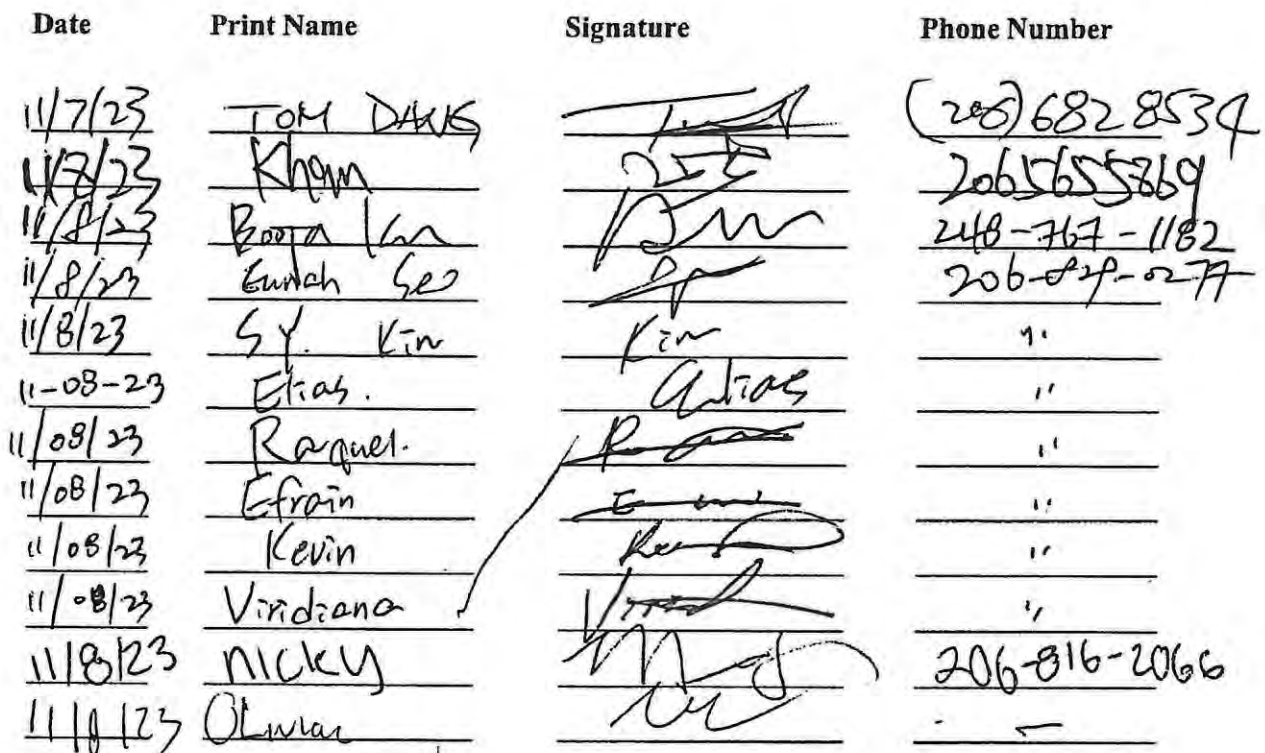 Date Print Name Signature Phone Number
11/7/23 TOM DANG (206) 682 8534
11/8/23 Kham 2065655869
11/8/23 248-767-1182
11/8/23 Eunah Seo
11/8/23 S.Y. Kim Kim "
11-08-23 Elias. Elias "
11/08/23 Raquel. "
11/08/23 Efrain "
11/08/23 Kevin "
11/08/23 Viridiana "
11/8/23 NICKY 206-816-2066
11/8/23 OLivia -